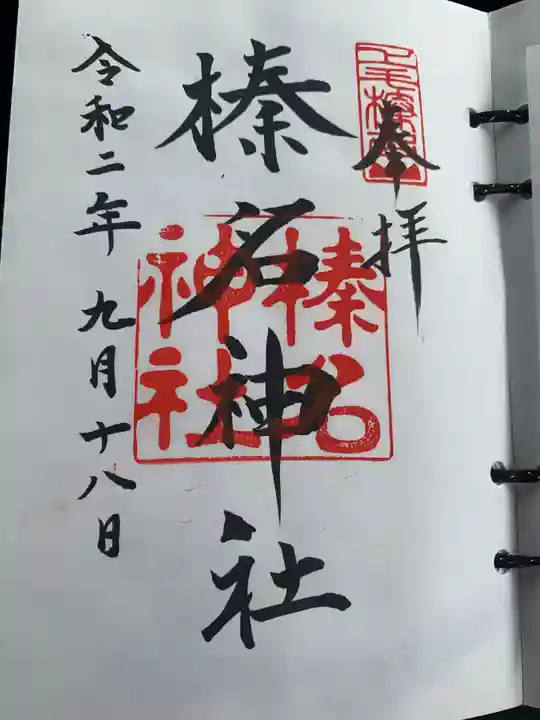 奉拝
榛名神社
榛名神社
令和二年九月十八日